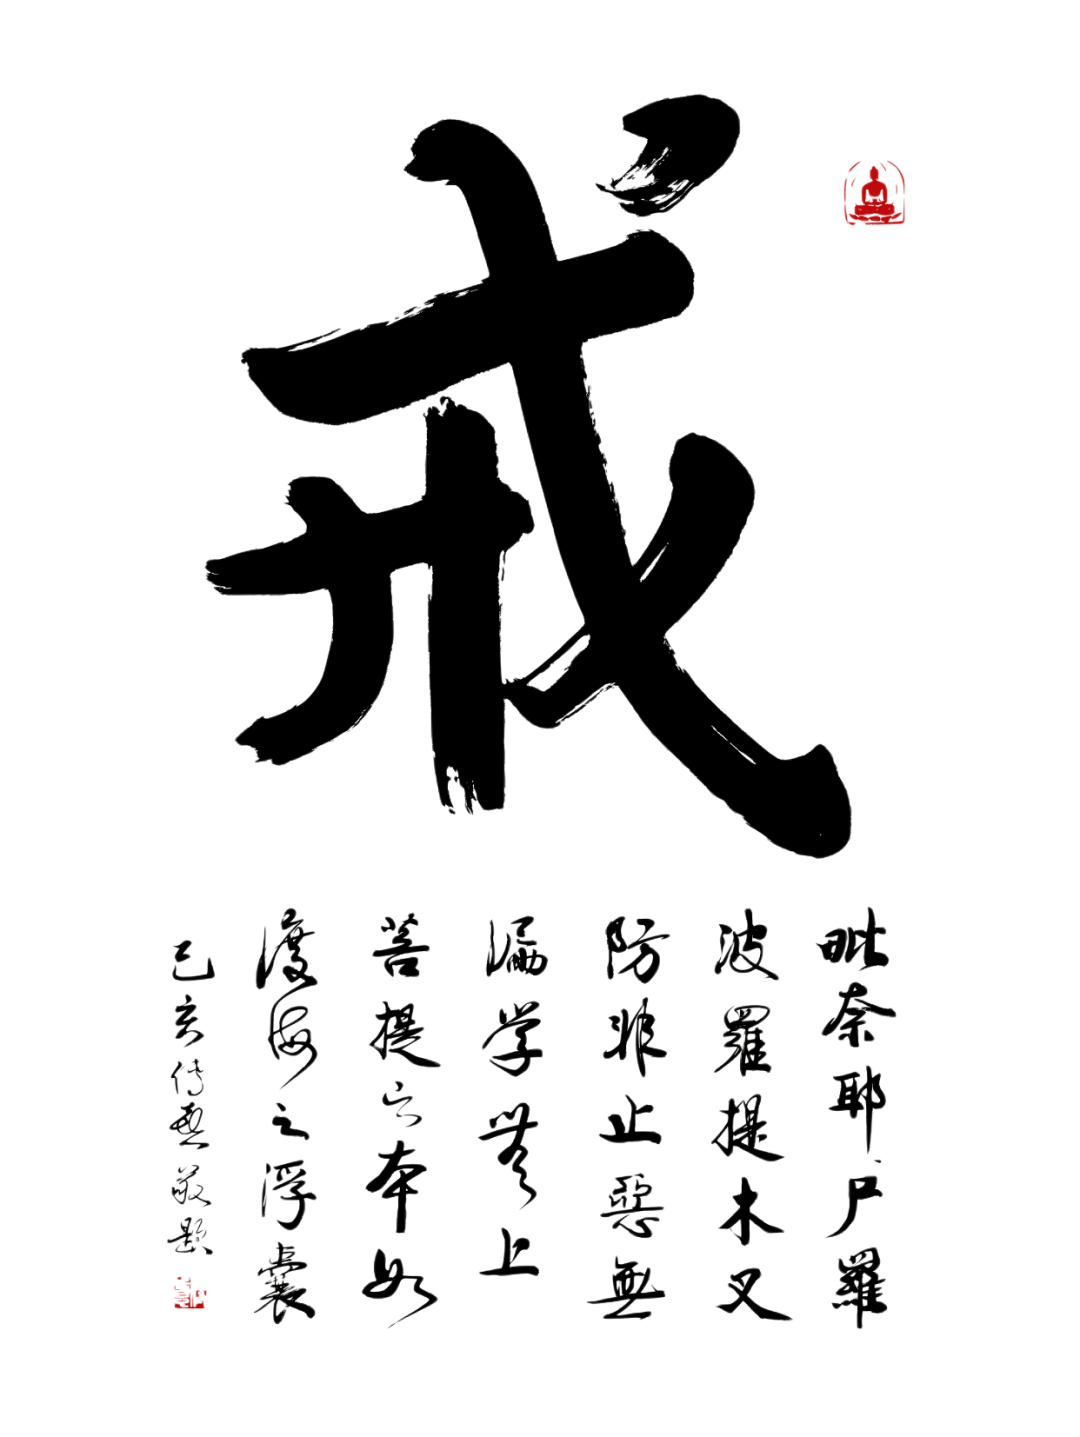 戒
毗奈耶尸羅
波羅提木叉
防非止惡無
漏学無上
菩提之本如
渡海之浮囊
己亥傳燕敬題